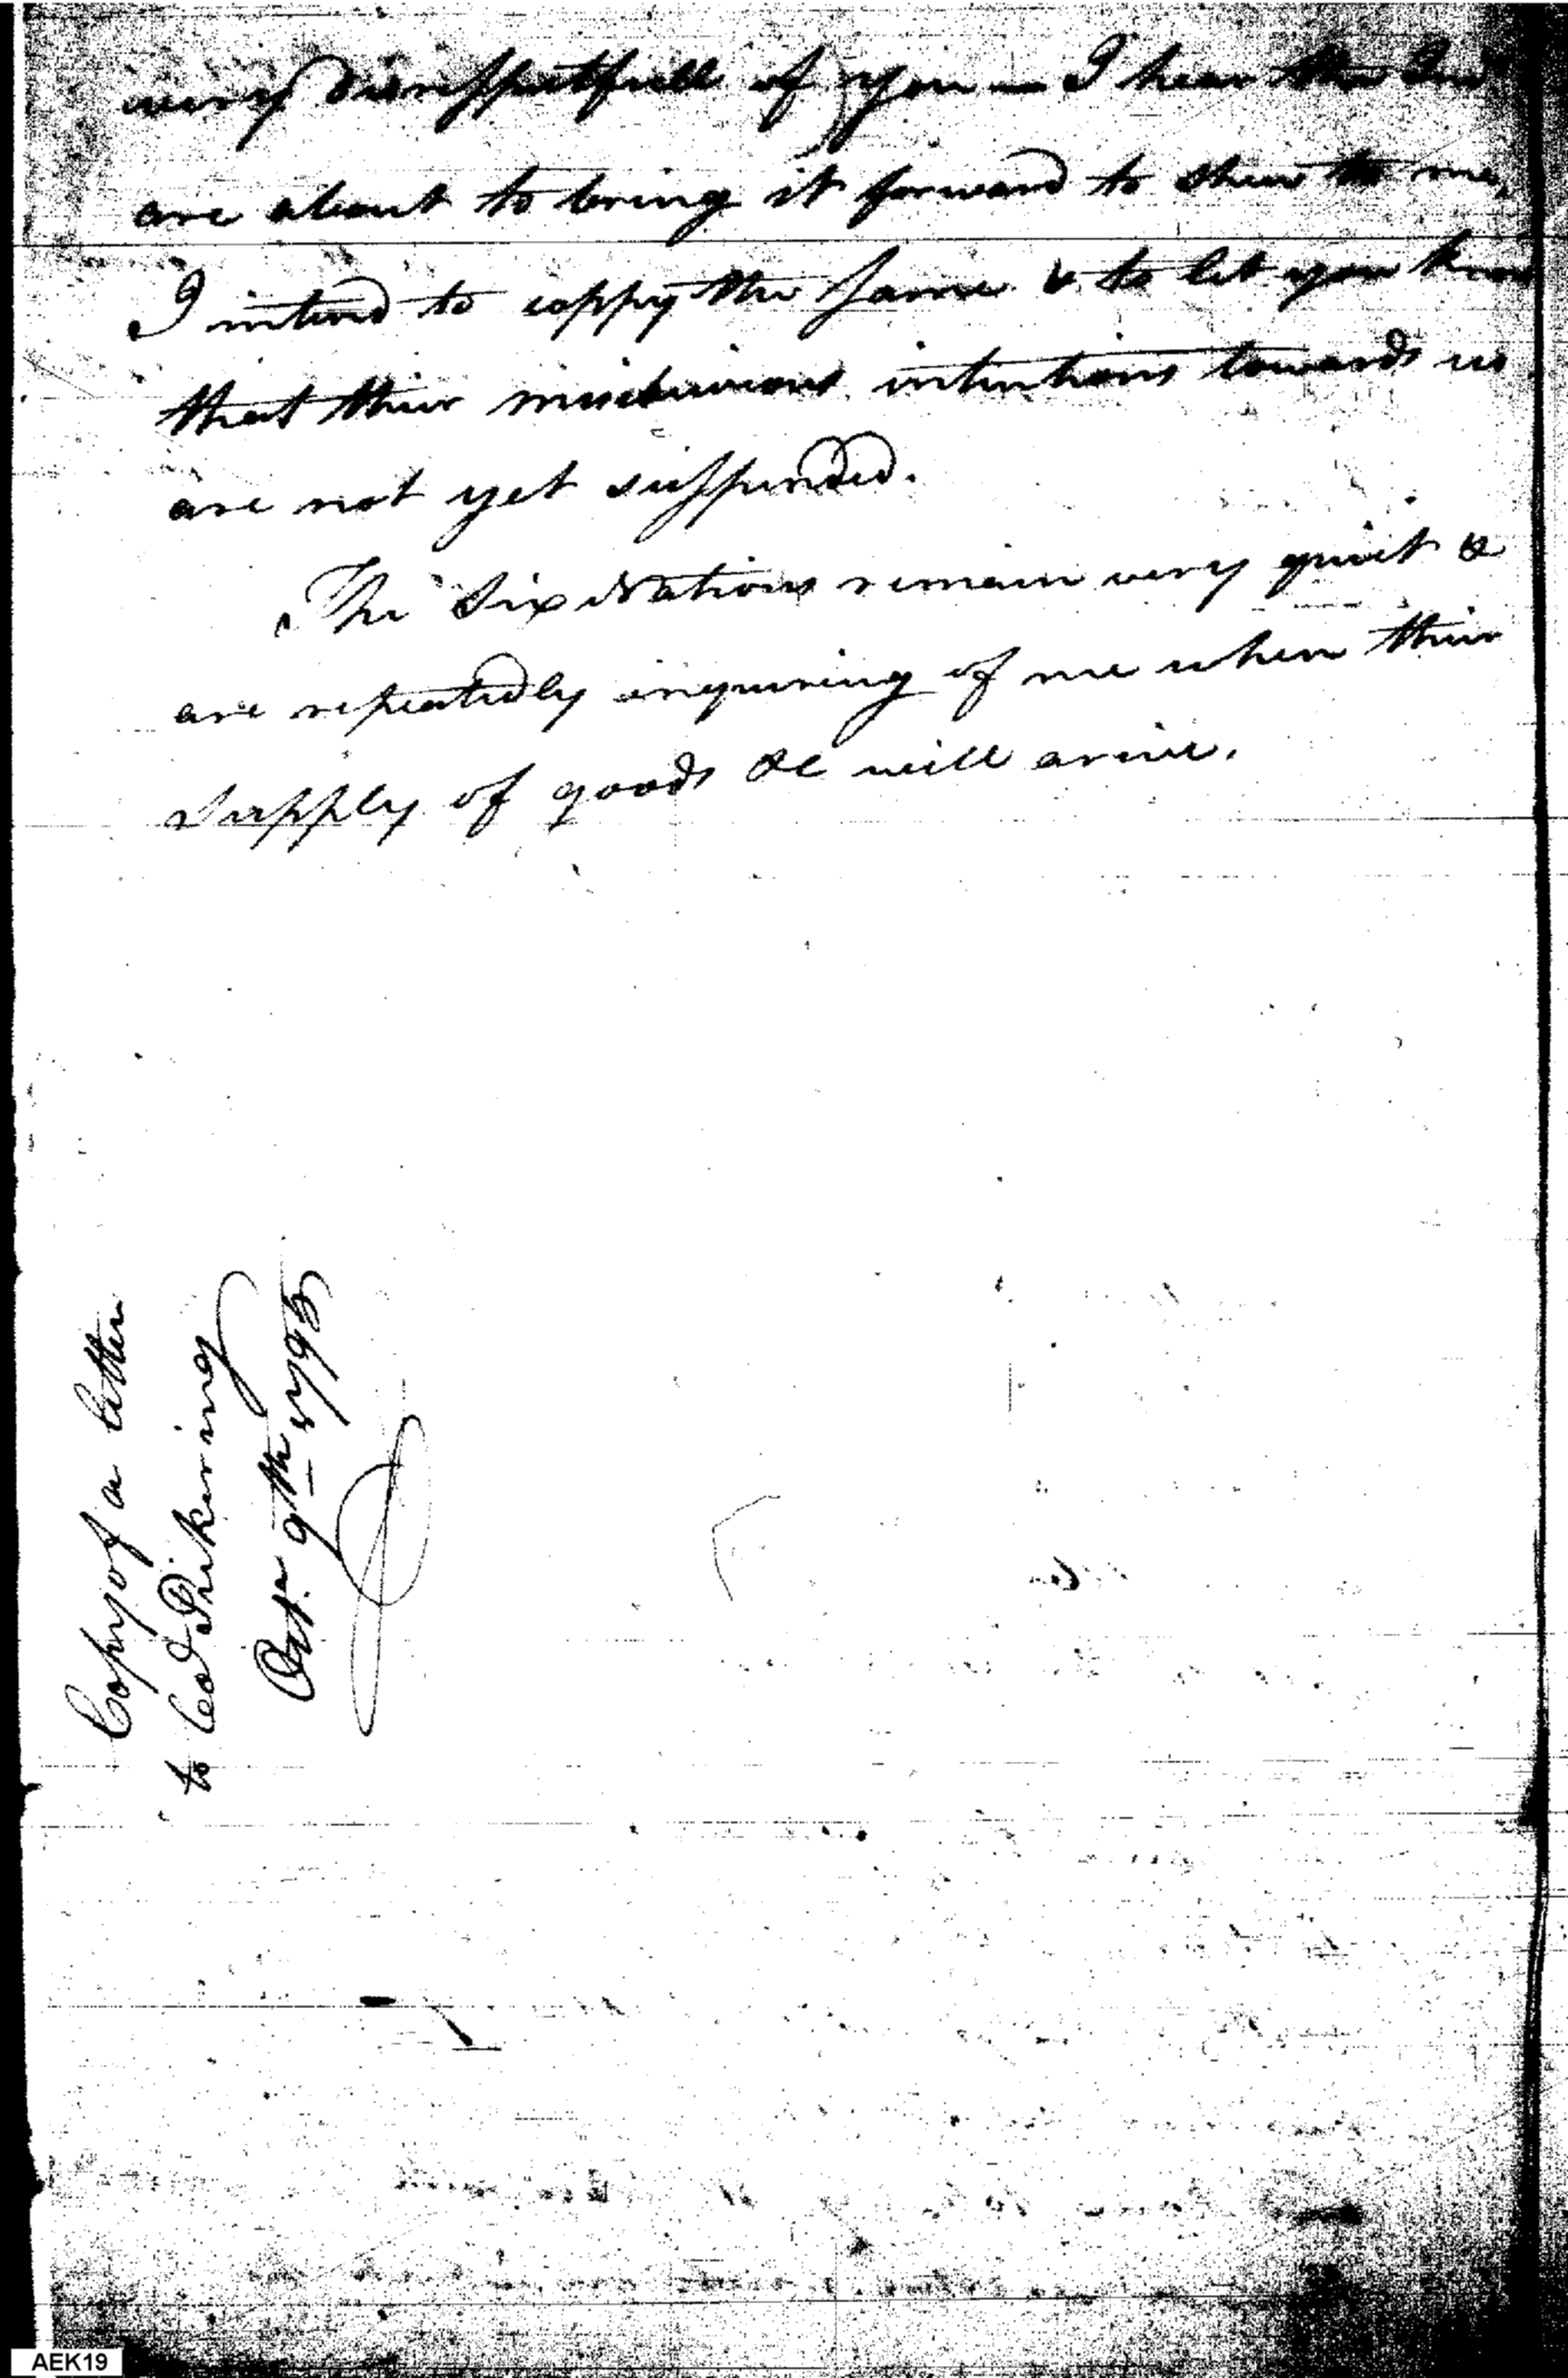 very disrespectfull of you — I hear the Ind
are about to bring it forward to shew to me,
I intend to coppy the same & to let you know
that their mischievious intentions towards us
are not yet suspended.
The Six Nations remain very quiet &
are repeatedly inquiring of me when their
supply of goods &c will arive.
Copy of a letter
to Col Pickering
Octr. 9th 1795
AEK19